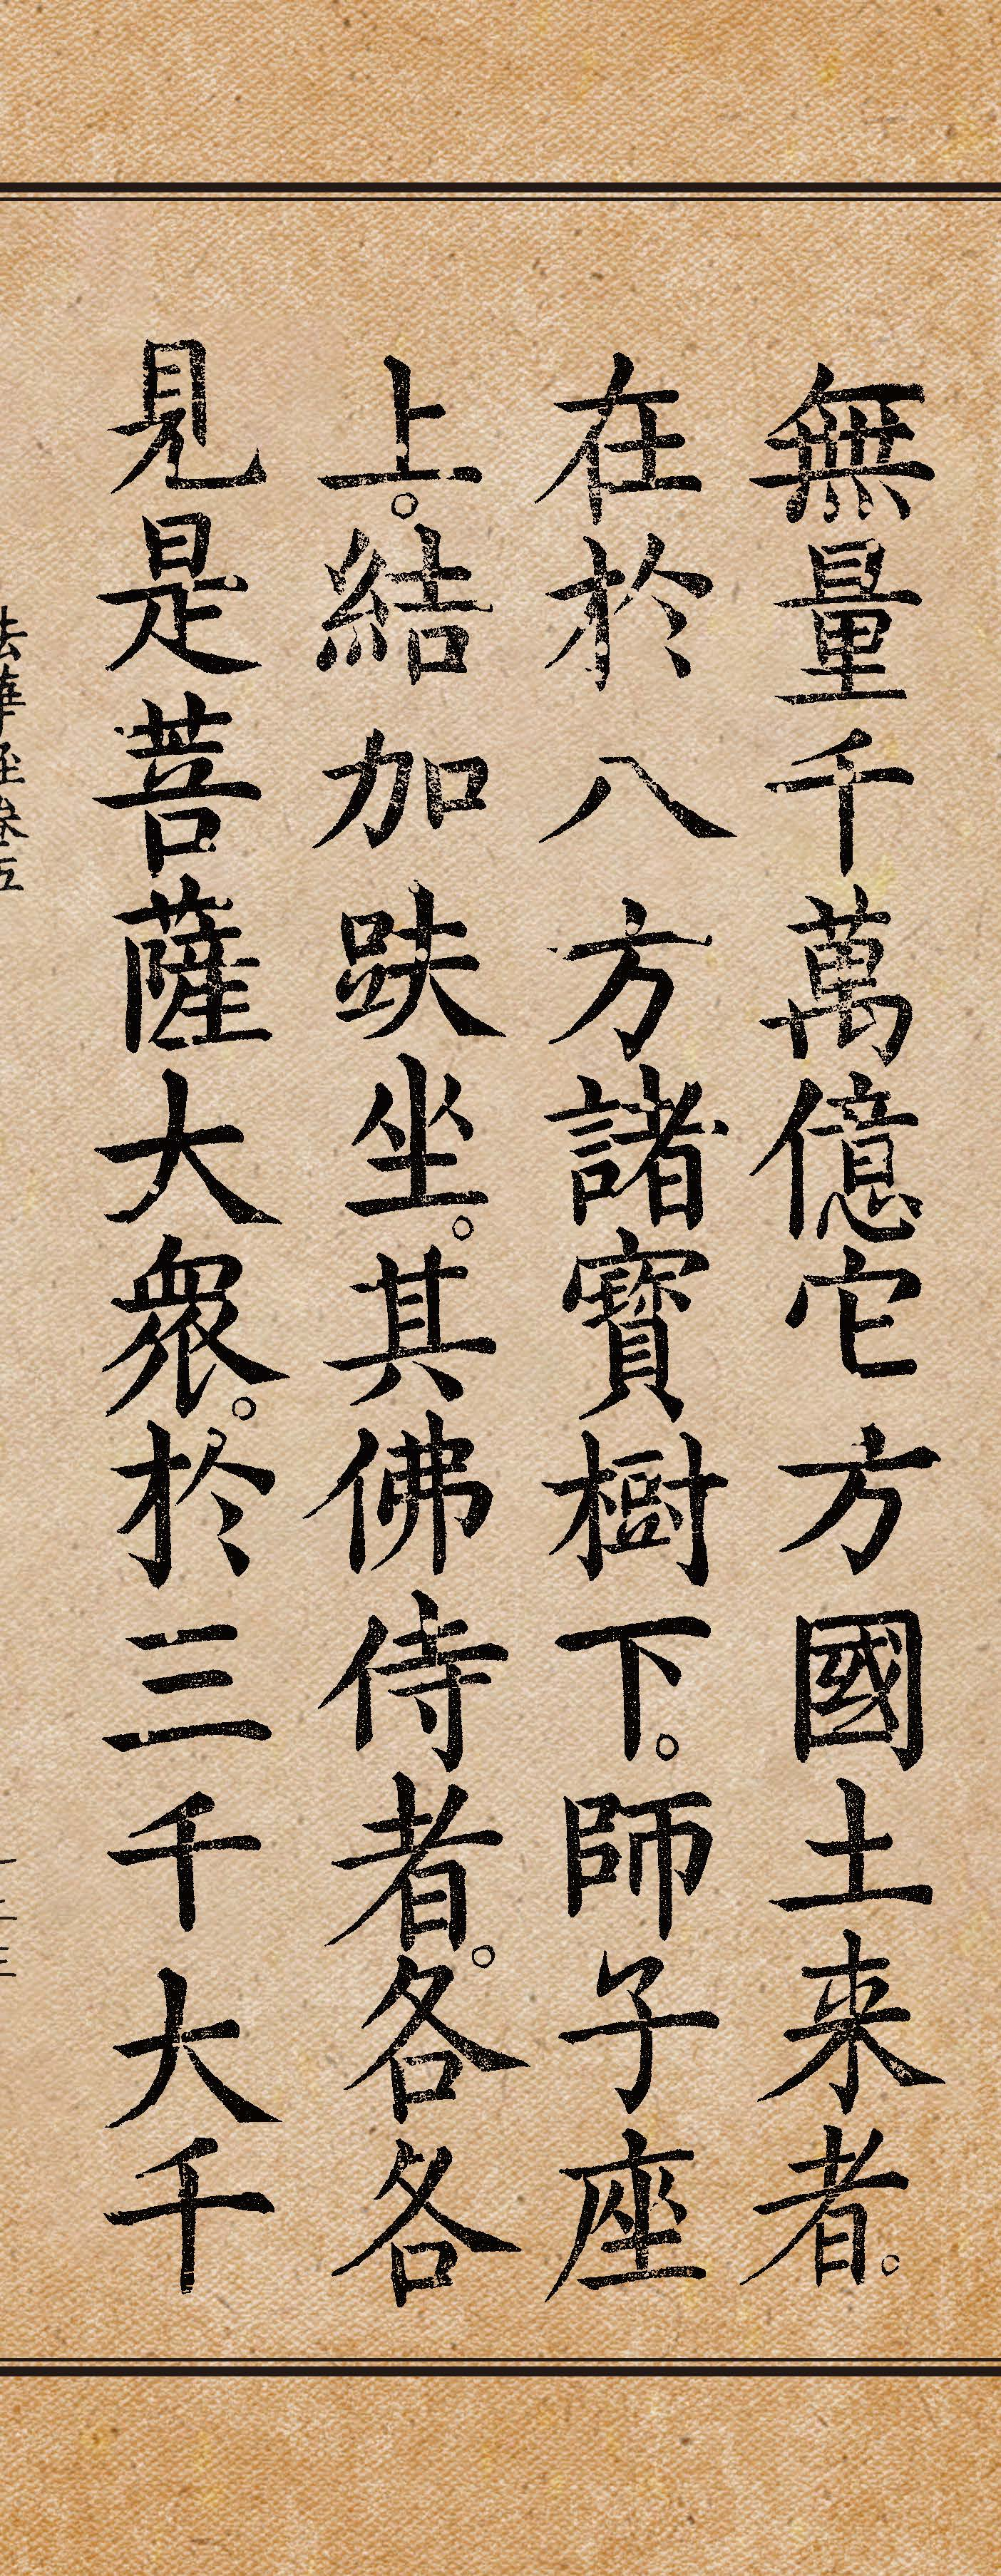 無量千萬億它方國土来者。
在於八方諸寶樹下。師子座
上。結加趺坐。其佛侍者。各各
見是菩薩大衆。於三千大千
法華經卷五